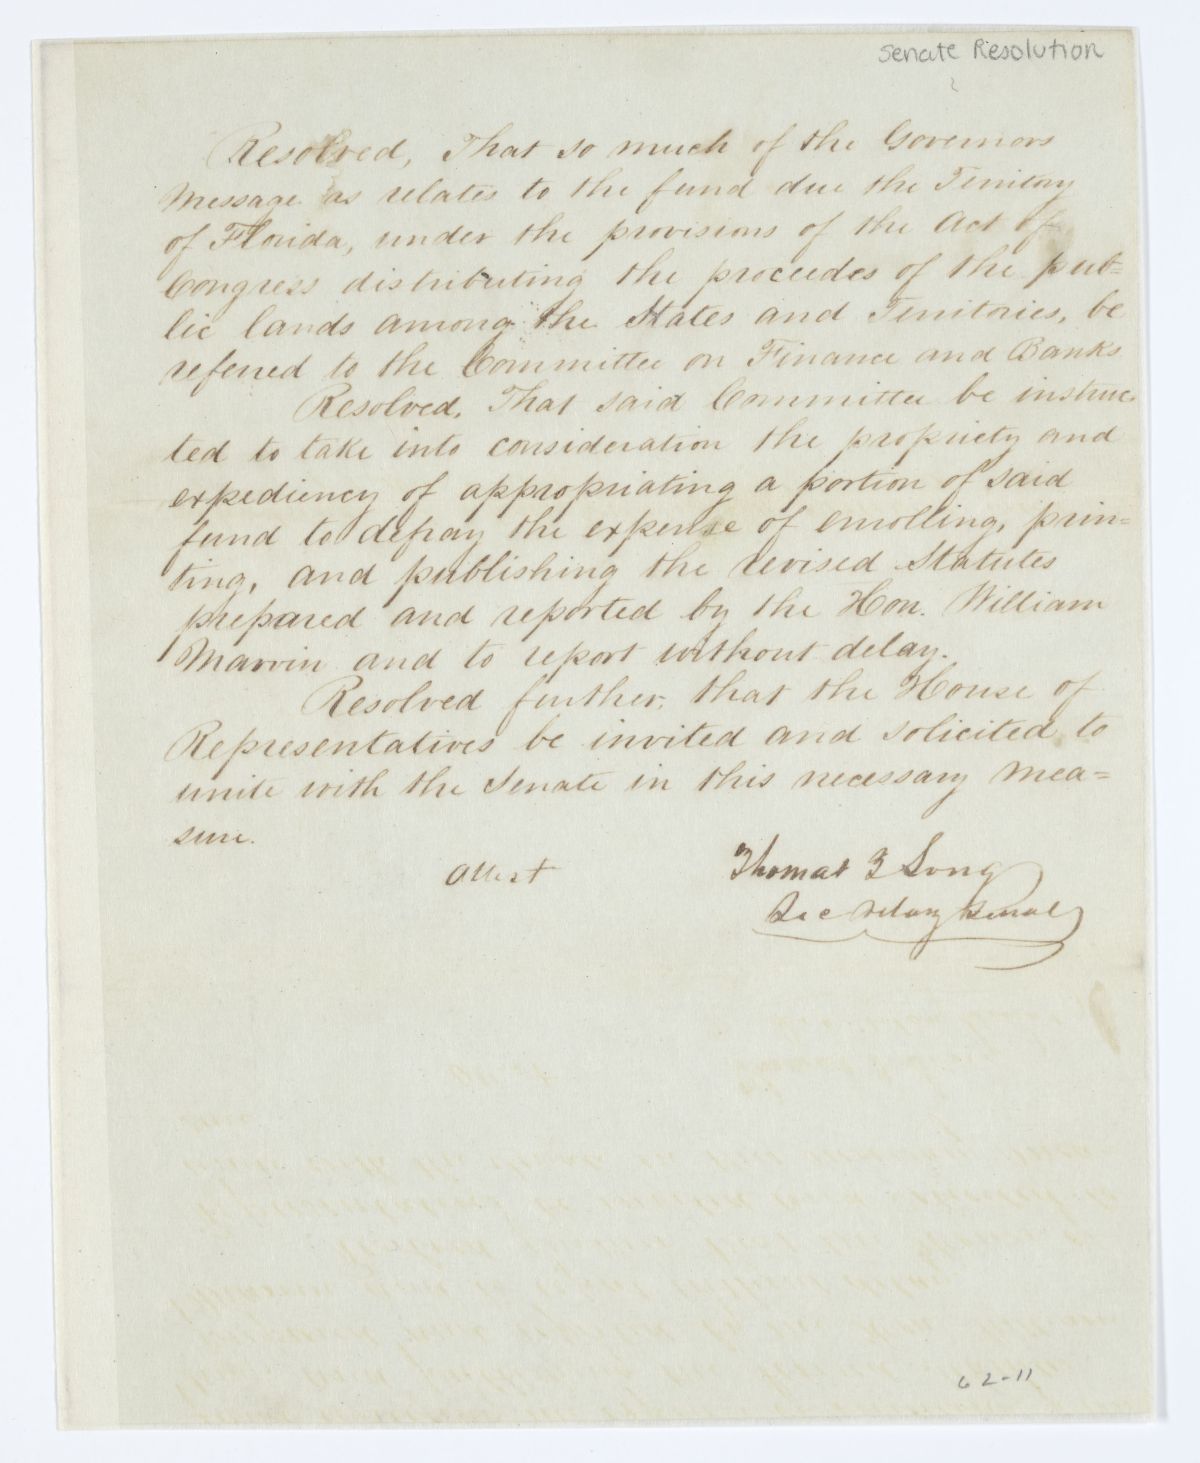 Senate Resolution
Resolved, That so much of the Governors
Message as relates to the fund due the Territory
of Florida, under the provisions of the Act of
Congress distributing the proceedes of the pub=
lic lands among the States and Territories, be
referred to the Committee on Finance and Banks
Resolved, That said Committee be instruc-
ted to take into consideration the propriety and
expediency of appropriating a portion of said
fund to defray the expense of enrolling, prin=
ting, and publishing the revised Statutes
prepared and reported by the Hon. William
Marvin and to report without delay.
Resolved further, that the House of
Representatives be invited and solicited to
unite with the Senate in this necessary mea=
sure.
Attest
Thomas T Long
Secretary Senate
62-11